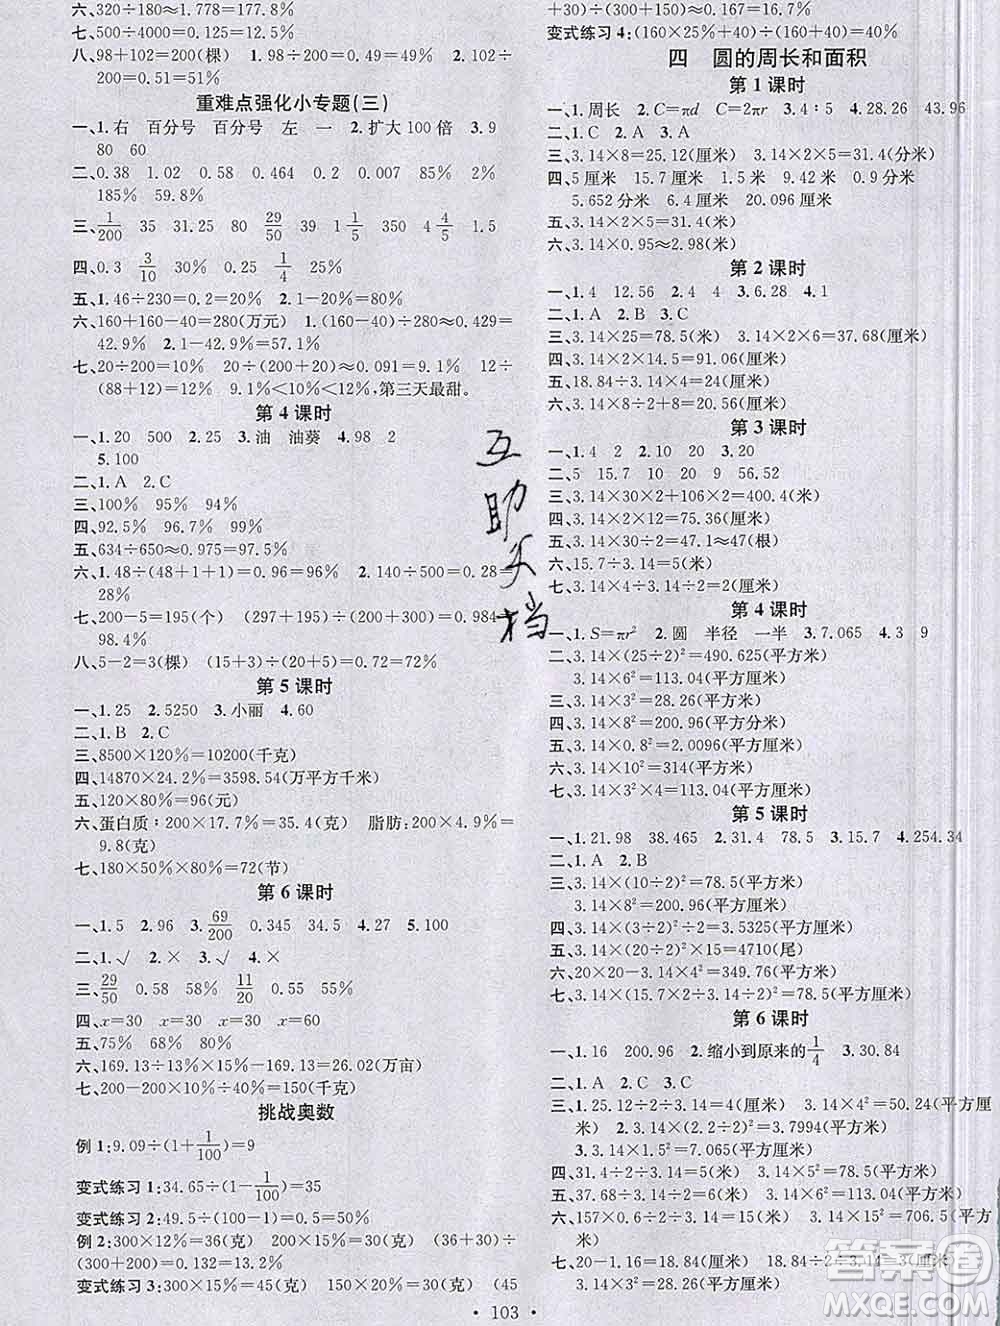 六、320÷180≈1.778=177.8%
七、500÷4000=0.125=12.5%
八、98+102=200(棵) 98÷200=0.49=49% 102÷
200=0.51=51%
重难点强化小专题(三)
一、1.右 百分号 百分号 左 一 2.扩大100倍 3.9
80 60
二、0.38 1.02 0.58 1.15 0.003 0.002 85% 2.7%
185% 59.8%
三、1/200 35 31.25 80 29/50 39 35 350 4 4/5 1.5
四、0.3 3/10 30% 0.25 1/4 25%
五、1.46÷230=0.2=20% 2.1-20%=80%
六、160+160-40=280(万元) 1.(160-40)÷280≈0.429=
42.9% 2.1-42.9%=57.1%
七、20÷200=10% 20÷(200+20)≈0.091=9.1% 12÷
(88+12)=12% 9.1%<10%<12%,第三天最甜。
第4课时
一、1.20 500 2.25 3.油 油葵 4.98 2
5.100
二、1.A 2.C
三、100% 95% 96% 94%
四、92.5% 96.7% 99%
五、634÷650≈0.975=97.5%
六、1.48÷(48+1+1)=0.96=96% 2.140÷500=0.28=
28%
七、200-5=195(个) (297+195)÷(300+200)=0.984=
98.4%
八、5-2=3(棵) (15+3)÷(20+5)=0.72=72%
第5课时
一、1.25 2.5250 3.小丽 4.60
二、1.B 2.C
三、8500×120%=10200(千克)
四、14870×24.2%=3598.54(万平方千米)
五、120×80%=96(元)
六、蛋白质:200×17.7%=35.4(克) 脂肪:200×4.9%=
9.8(克)
七、180×50%×80%=72(节)
第6课时
一、1.5 2.96 3.69/200 0.345 34.5 4.27 5.100
二、1.√ 2.× 3.√ 4.×
三、29/50 0.58 58% 11/20 0.55 55%
四、x=30 x=30 x=60
五、75% 68% 80%
六、169.13÷12.3%×15%=206.25(万亩)
七、200-200×10%÷40%=150(千克)
挑战奥数
例1:9.09÷(1+1/100)=9
变式练习1:34.65÷(1-1/100)=35
变式练习2:49.5÷(100-1)=0.5=50%
例2:300×12%=36(克) 200×15%=30(克) (36+30)÷
(300+200)=0.132=13.2%
变式练习3:300×15%=45(克) 150×20%=30(克) (45
+30)÷(300+150)≈0.167=16.7%
变式练习4:(160×25%+40)÷(160+40)=40%
四 圆的周长和面积
第1课时
一、1.周长 2.C=πd C=2πr 3.4∶5 4.28.26 43.96
二、1.C 2.A 3.A
三、3.14×8=25.12(厘米) 3.14×2×5=31.4(分米)
四、5厘米 15.7厘米 1.5米 9.42米 0.9分米
5.652分米 6.4厘米 20.096厘米
五、3.14×2×5=31.4(厘米)
六、3.14×0.95≈2.98(米)
第2课时
一、1.4 12.56 2.8 4 3.6.28 4.1
二、1.A 2.B 3.C
三、3.14×25=78.5(米) 3.14×2×6=37.68(厘米)
四、3.14×2×14.5=91.06(厘米)
五、18.84÷3.14×4=24(厘米)
六、3.14×8÷2+8=20.56(厘米)
第3课时
一、1.4 2.π 3.10 3.20
二、5 15.7 10 20 9 56.52
三、3.14×30×2+106×2=400(米)
四、3.14×2×12=75.36(厘米)
五、3.14×30÷2=47.1≈47(根)
六、15.7÷3.14=5(米)
七、3.14×4÷2+3.14×4=18.84(厘米)
第4课时
一、1.S=πr² 2.圆 半径 一半 3.7.065 4.3 9
二、3.14×(25÷2)²=490.625(平方厘米)
3.14×6²=113.04(平方厘米)
三、3.14×3²=28.26(平方米)
四、3.14×8²=200.96(平方分米)
五、3.14×0.8²=2.0096(平方米)
六、3.14×10²=314(平方米)
七、3.14×3²×4=113.04(平方厘米)
第5课时
一、1.21.98 38.465 2.31.4 78.5 3.15.7 4.254.34
二、1.A 2.B
三、3.14×(10÷2)²=78.5(平方米)
3.14×8²=200.96(平方厘米)
四、3.14×(3÷2)²÷2=3.5325(平方米)
五、3.14×(20÷2)²×15=4710(尾)
六、3.14×(20²-17²)=348.54(平方米)
七、3.14×(15.7×2÷3.14÷2)²=78.5(平方厘米)
第6课时
一、1.16 200.96 2.缩小到原来的1/4 3.30.84
二、1.A 2.C 3.C
三、1.25.12÷2÷3.14=4(厘米) 3.14×4²=50.24(平方厘
米) 2.3.14×(2.2÷2)²=3.7994(平方米)
3.3.14×1.5²=7.065(平方厘米)
四、31.4÷2÷3.14=5(米) 3.14×5²=78.5(平方米)
五、37.68÷2÷3.14=6(米) 3.14×6²=113.04(平方米)
六、157×0.6÷2÷3.14=15(米) 3.14×15²=706.5(平方
米)
七、20-1.16=18.84(米) 18.84÷2÷3.14=3(米)
3.14×3²=28.26(平方米)
· 103 ·
互
助
天
档
答案圈
MXQE.COM